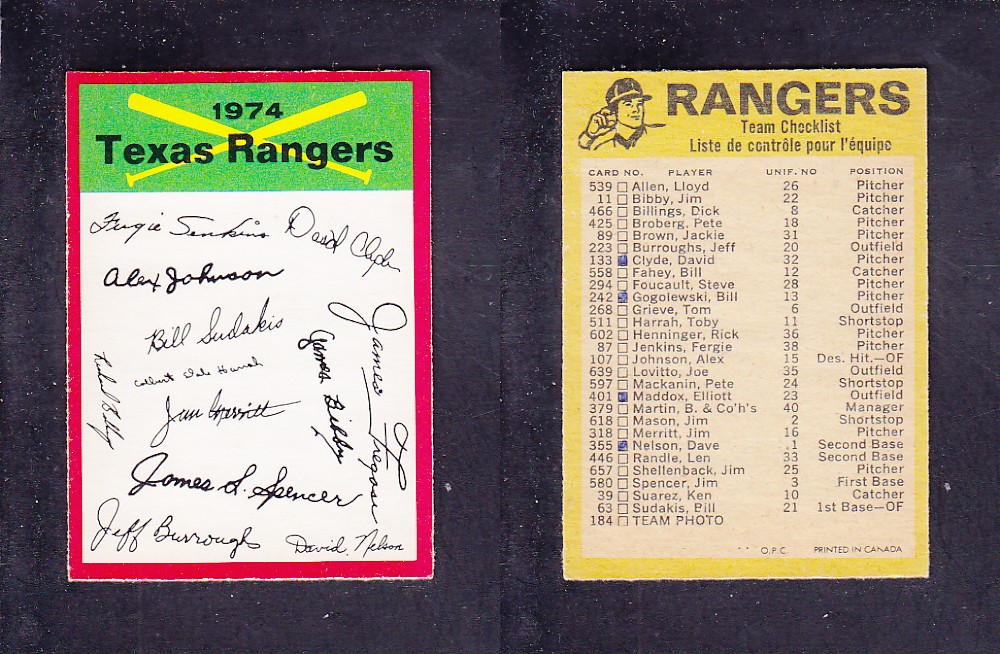 1974
Texas Rangers
Fergie Jenkins
David Clyde
Alex Johnson
Bill Sudakis
James Fregosi
James Bibby
Jim Merritt
James L. Spencer
Jeff Burroughs
David Nelson
RANGERS
Team Checklist
Liste de contrôle pour l'équipe
CARD NO. PLAYER UNIF. NO POSITION
539 Allen, Lloyd 26 Pitcher
11 Bibby, Jim 22 Pitcher
466 Billings, Dick 8 Catcher
425 Broberg, Pete 18 Pitcher
89 Brown, Jackie 31 Pitcher
223 Burroughs, Jeff 20 Outfield
133 Clyde, David 32 Pitcher
558 Fahey, Bill 12 Catcher
294 Foucault, Steve 28 Pitcher
242 Gogolewski, Bill 13 Pitcher
268 Grieve, Tom 6 Outfield
511 Harrah, Toby 11 Shortstop
602 Henninger, Rick 36 Pitcher
87 Jenkins, Fergie 38 Pitcher
107 Johnson, Alex 15 Des. Hit.—OF
639 Lovitto, Joe 35 Outfield
597 Mackanin, Pete 24 Shortstop
401 Maddox, Elliott 23 Outfield
379 Martin, B. & Co'h's 40 Manager
618 Mason, Jim 2 Shortstop
318 Merritt, Jim 16 Pitcher
355 Nelson, Dave 1 Second Base
446 Randle, Len 33 Second Base
657 Shellenback, Jim 25 Pitcher
580 Spencer, Jim 3 First Base
39 Suarez, Ken 10 Catcher
63 Sudakis, Bill 21 1st Base—OF
184 TEAM PHOTO
O.P.C. PRINTED IN CANADA